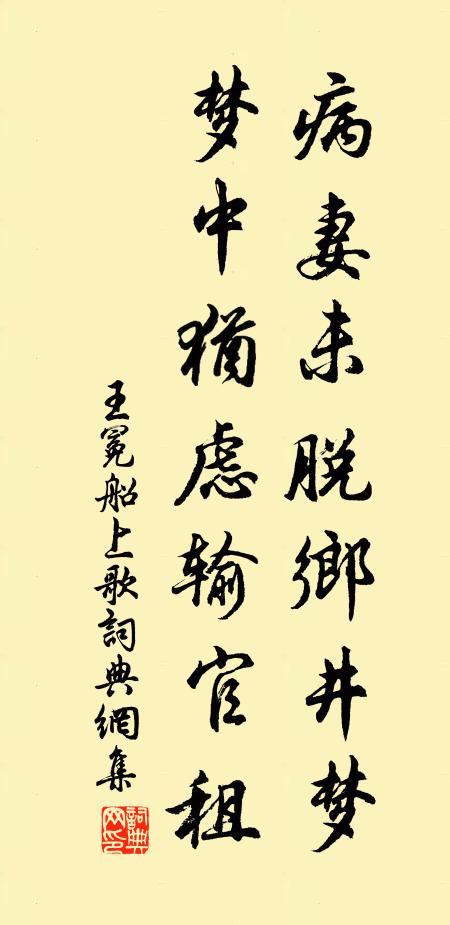 病妻未脱鄉井梦
梦中猶虑输官租
王冕船上歌詞典網集
詞典网印